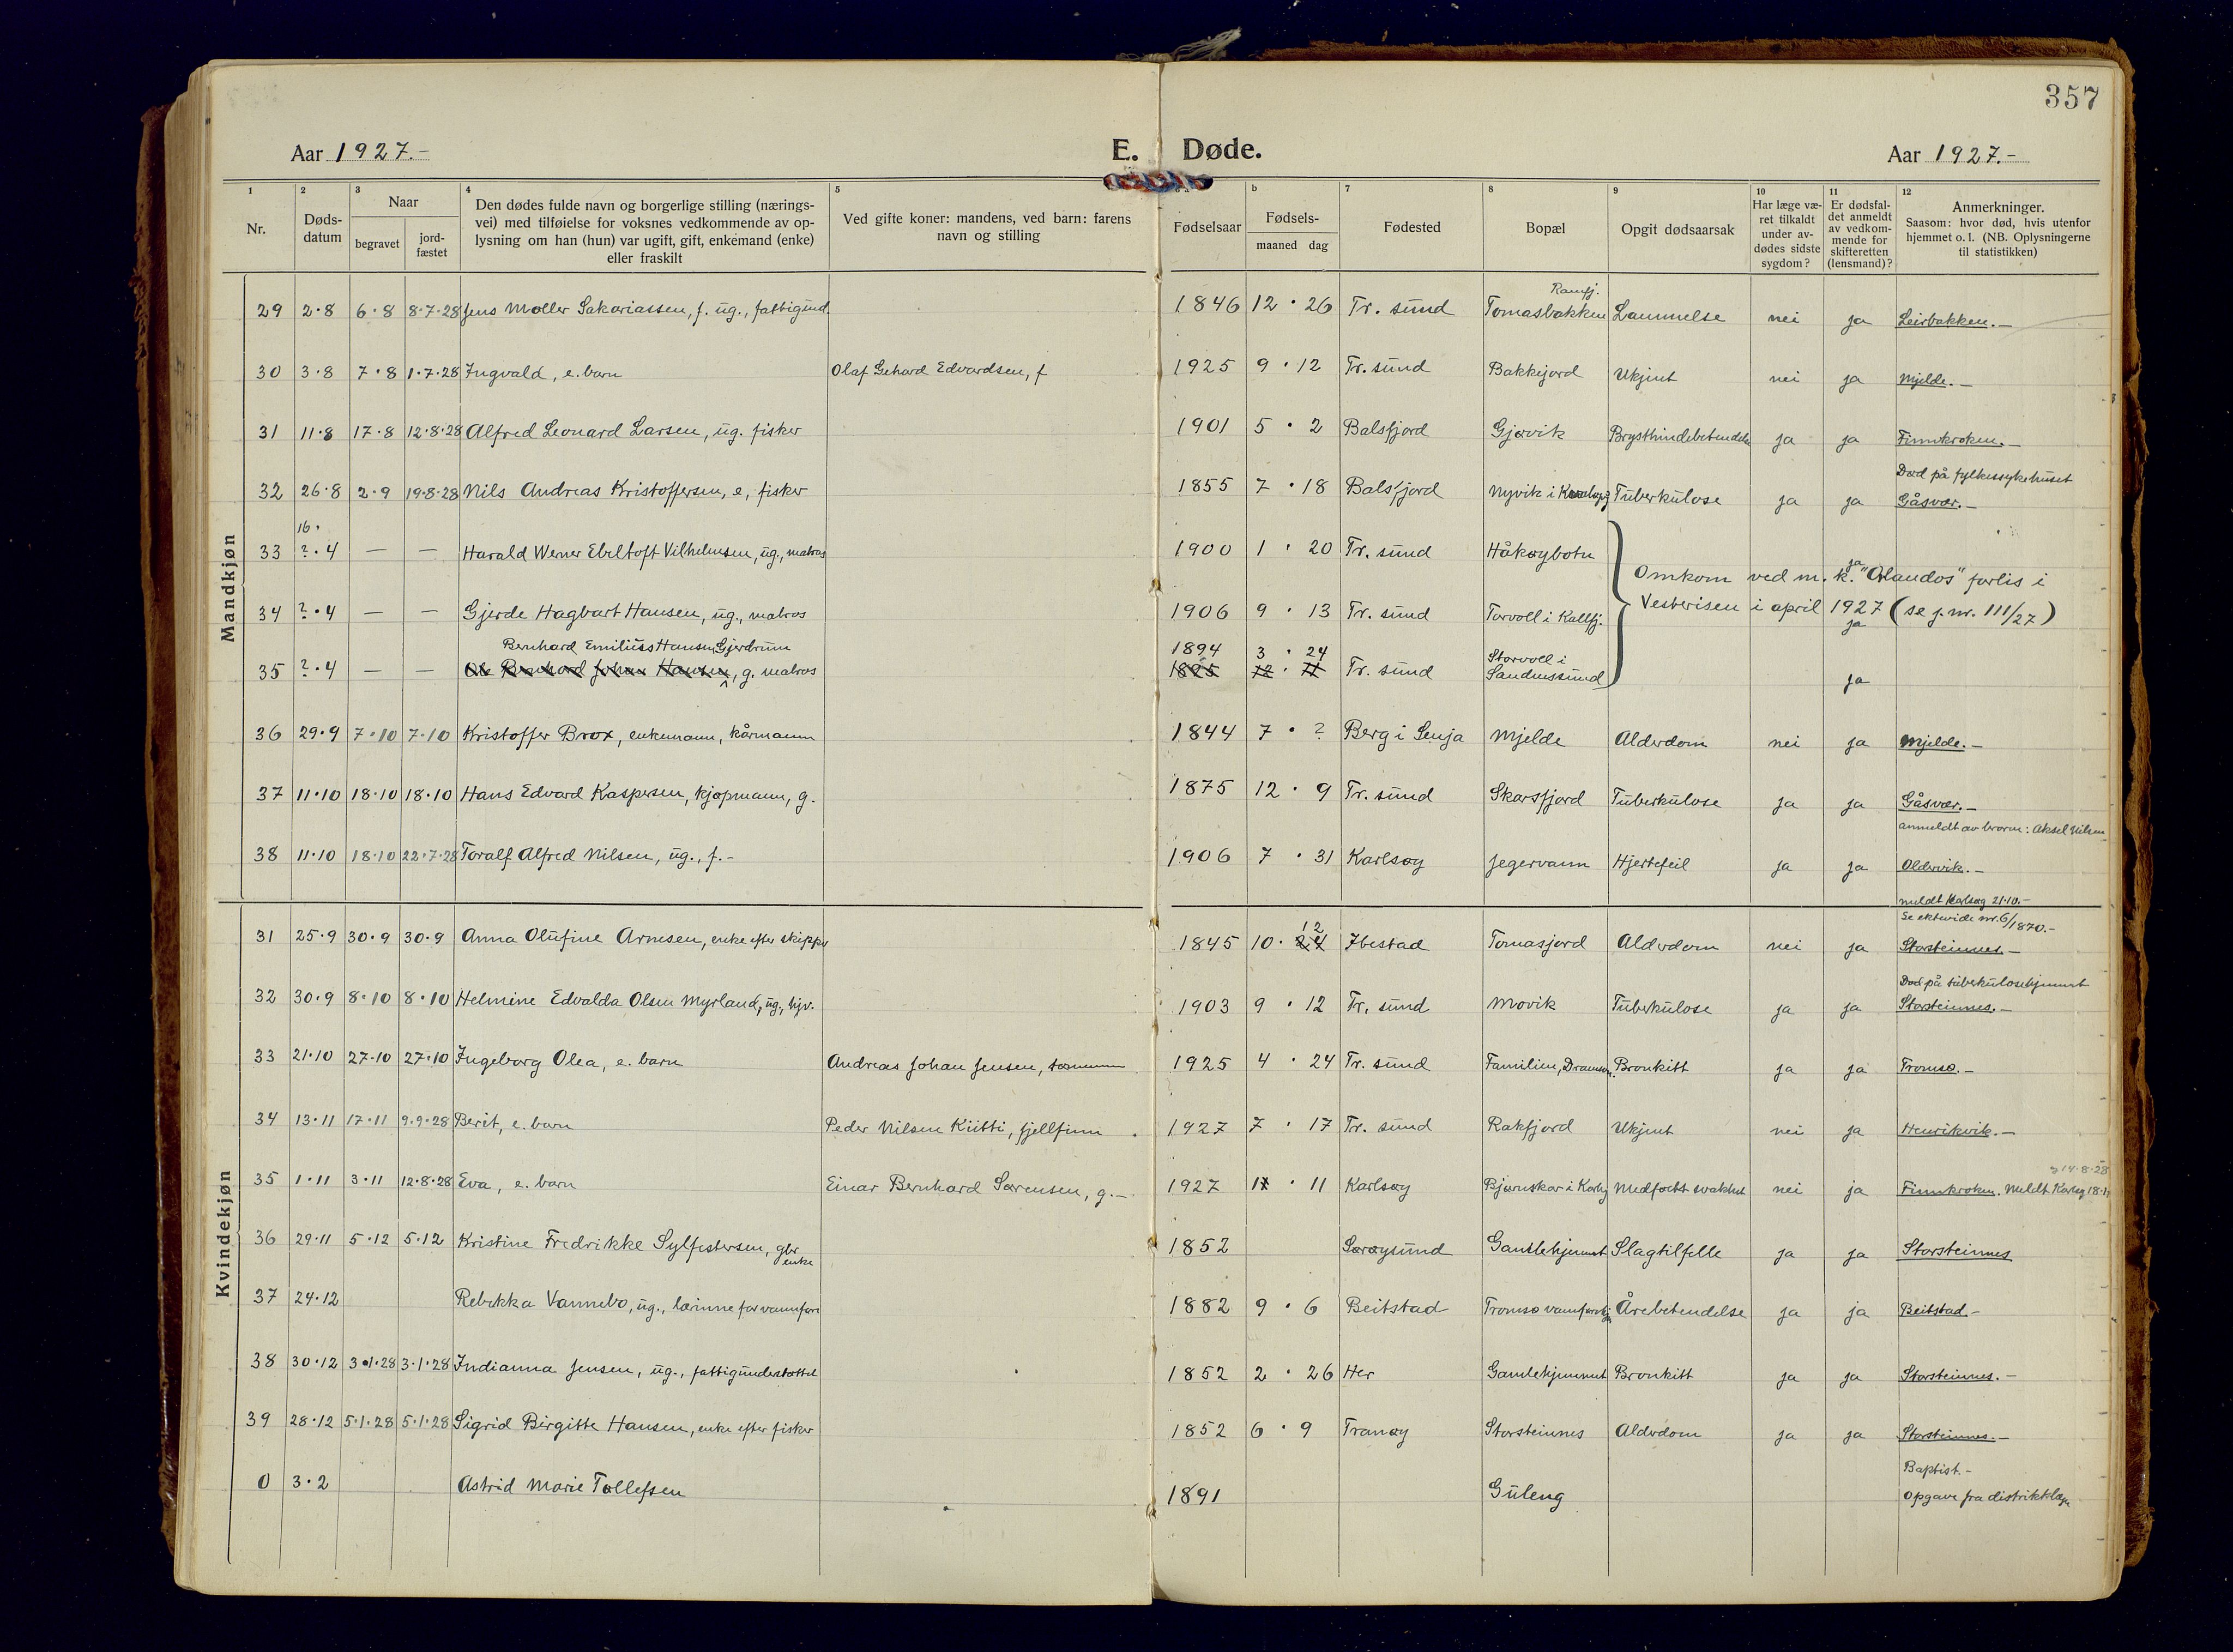 357
Aar 1927.-
E. Døde.
Aar 1927.-
1 2 3 4 5 b 7 8 9 10 11 12
Nr.
Døds-
datum
Naar
begravet
jord-
fæstet
Den dødes fulde navn og borgerlige stilling (nærings-
vei) med tilføielse for voksnes vedkommende av op-
lysning om han (hun) var ugift, gift, enkemand (enke)
eller fraskilt
Ved gifte koner: mandens, ved barn: farens
navn og stilling
Fødselsaar
Fødsels-
maaned dag
Fødested
Bopæl
Opgit dødsaarsak
Har læge væ-
ret tilkaldt
under av-
dødes sidste
sygdom?
Er dødsfal-
det anmeldt
av vedkom-
mende for
skifteretten
(lensmand)?
Anmerkninger.
Saasom: hvor død, hvis utenfor
hjemmet o. l. (NB. Oplysningerne
til statistikken)
Mandkjøn
Ramfj.
29 2·8 6·8 8·7·28 Jens Møller Sakariassen, f. ug., fattigund. 1846 12 · 26 Tr. sund Tomasbakken Lammelse nei ja Leirbakken.-
30 3·8 7·8 1·7·28 Ingvald, e. barn Olaf Gehard Edvardsen, f 1925 9 · 12 Tr. sund Bakkejord Ukjent nei ja Mjelde.-
31 11·8 17·8 12·8·28 Alfred Leonard Larsen, ug. fisker 1901 5 · 2 Balsfjord Gjøvik Brysthindebetendelse ja ja Finnkroken.-
Død på fylkessykehuset
32 26·8 2·9 19·8·28 Nils Andreas Kristoffersen, e, fisker 1855 7 · 18 Balsfjord Nyvik i Tuberkulose ja ja Gåsvær.-
16.
33 ?·4 — — Harald Werner Ebeltoft Vilhelmsen, ug., matros 1900 1 · 20 Tr. sund Håkøybotn
Omkom ved m. k. "Olandos" forlis i
ja
34 ?·4 — — Gjerde Hagbart Hansen, ug., matros 1906 9 · 13 Tr. sund Torvoll i Kallfj.
Vesterisen i april 1927 (se j. nr. 111/27)
ja
Bernhard Emilius Hansen Gjerdrum 1894 3 · 24 Storvoll i
35 ?·4 — — Ole Bernhard Johan Hansen, g. matros 1895 12 · 11 Tr. sund Sandnessund ja
36 29·9 7·10 7·10 Kristoffer Brox, enkemann, kårmann 1844 7 · ? Berg i Senja Mjelde Alderdom nei ja Mjelde.-
37 11·10 18·10 18·10 Hans Edvard Kaspersen, kjøpmann, g. 1875 12 · 9 Tr. sund Skarsfjord Tuberkulose ja ja Gåsvær.-
anmeldt av broren: Aksel Nilsen
38 11·10 18·10 22·7·28 Toralf Alfred Nilsen, ug., f.- 1906 7 · 31 Karlsøy Jegervann Hjertefeil ja ja Oldervik.-
meldt Karlsøy 21·10.-
Kvindekjøn
Se ektevide nr. 6/1870.-
12
31 25·9 30·9 30·9 Anna Olufine Arnesen, enke efter skipper 1845 10 · 24 Ibestad Tomasjord Alderdom nei ja Storsteinnes.-
Død på tuberkulosehjemmet
32 30·9 8·10 8·10 Helmine Edvalda Olsen Myrland, ug., hjv. 1903 9 · 12 Tr. sund Movik Tuberkulose ja ja Storsteinnes.-
33 21·10 27·10 27·10 Ingeborg Olea, e. barn Andreas Johan Jensen, tømmerm 1925 4 · 24 Tr. sund Familien, Dramsv. Bronkitt ja ja Tromsø.-
34 13·11 17·11 9·9·28 Berit, e. barn Peder Nilsen Kiitti, fjellfinn 1927 7 · 17 Tr. sund Rakfjord Ukjent nei ja Henrikvik.-
14·8·28
35 1·11 3·11 12·8·28 Eva, e. barn Einar Bernhard Sørensen, g.- 1927 11 · 11 Karlsøy Bjørnskar i Karlsøy Medfødt svakhet nei ja Finnkroken. Meldt Karlsøy 18·11
36 29·11 5·12 5·12 Kristine Fredrikke Sylfestersen, gbr. 1852 Sørøysund Gamlehjemmet Slagtilfelle ja ja Storsteinnes
enke
37 24·12 Rebekka Vannebo, ug., lærinne for vannføre 1882 9 · 6 Beitstad Tromsø vanførehj. Årebetendelse ja ja Beitstad.-
38 30·12 3·1·28 3·1·28 Indianna Jensen, ug., fattigunderstøttet 1852 2 · 26 Her Gamlehjemmet Bronkitt ja ja Storsteinnes.-
39 28·12 5·1·28 5·1·28 Sigrid Birgitte Hansen, enke efter fisker 1852 6 · 9 Tranøy Storsteinnes Alderdom ja ja Storsteinnes.-
Baptist.-
0 3·2 Astrid Marie Tollefsen 1891 Guleng Opgave fra distriktslæge